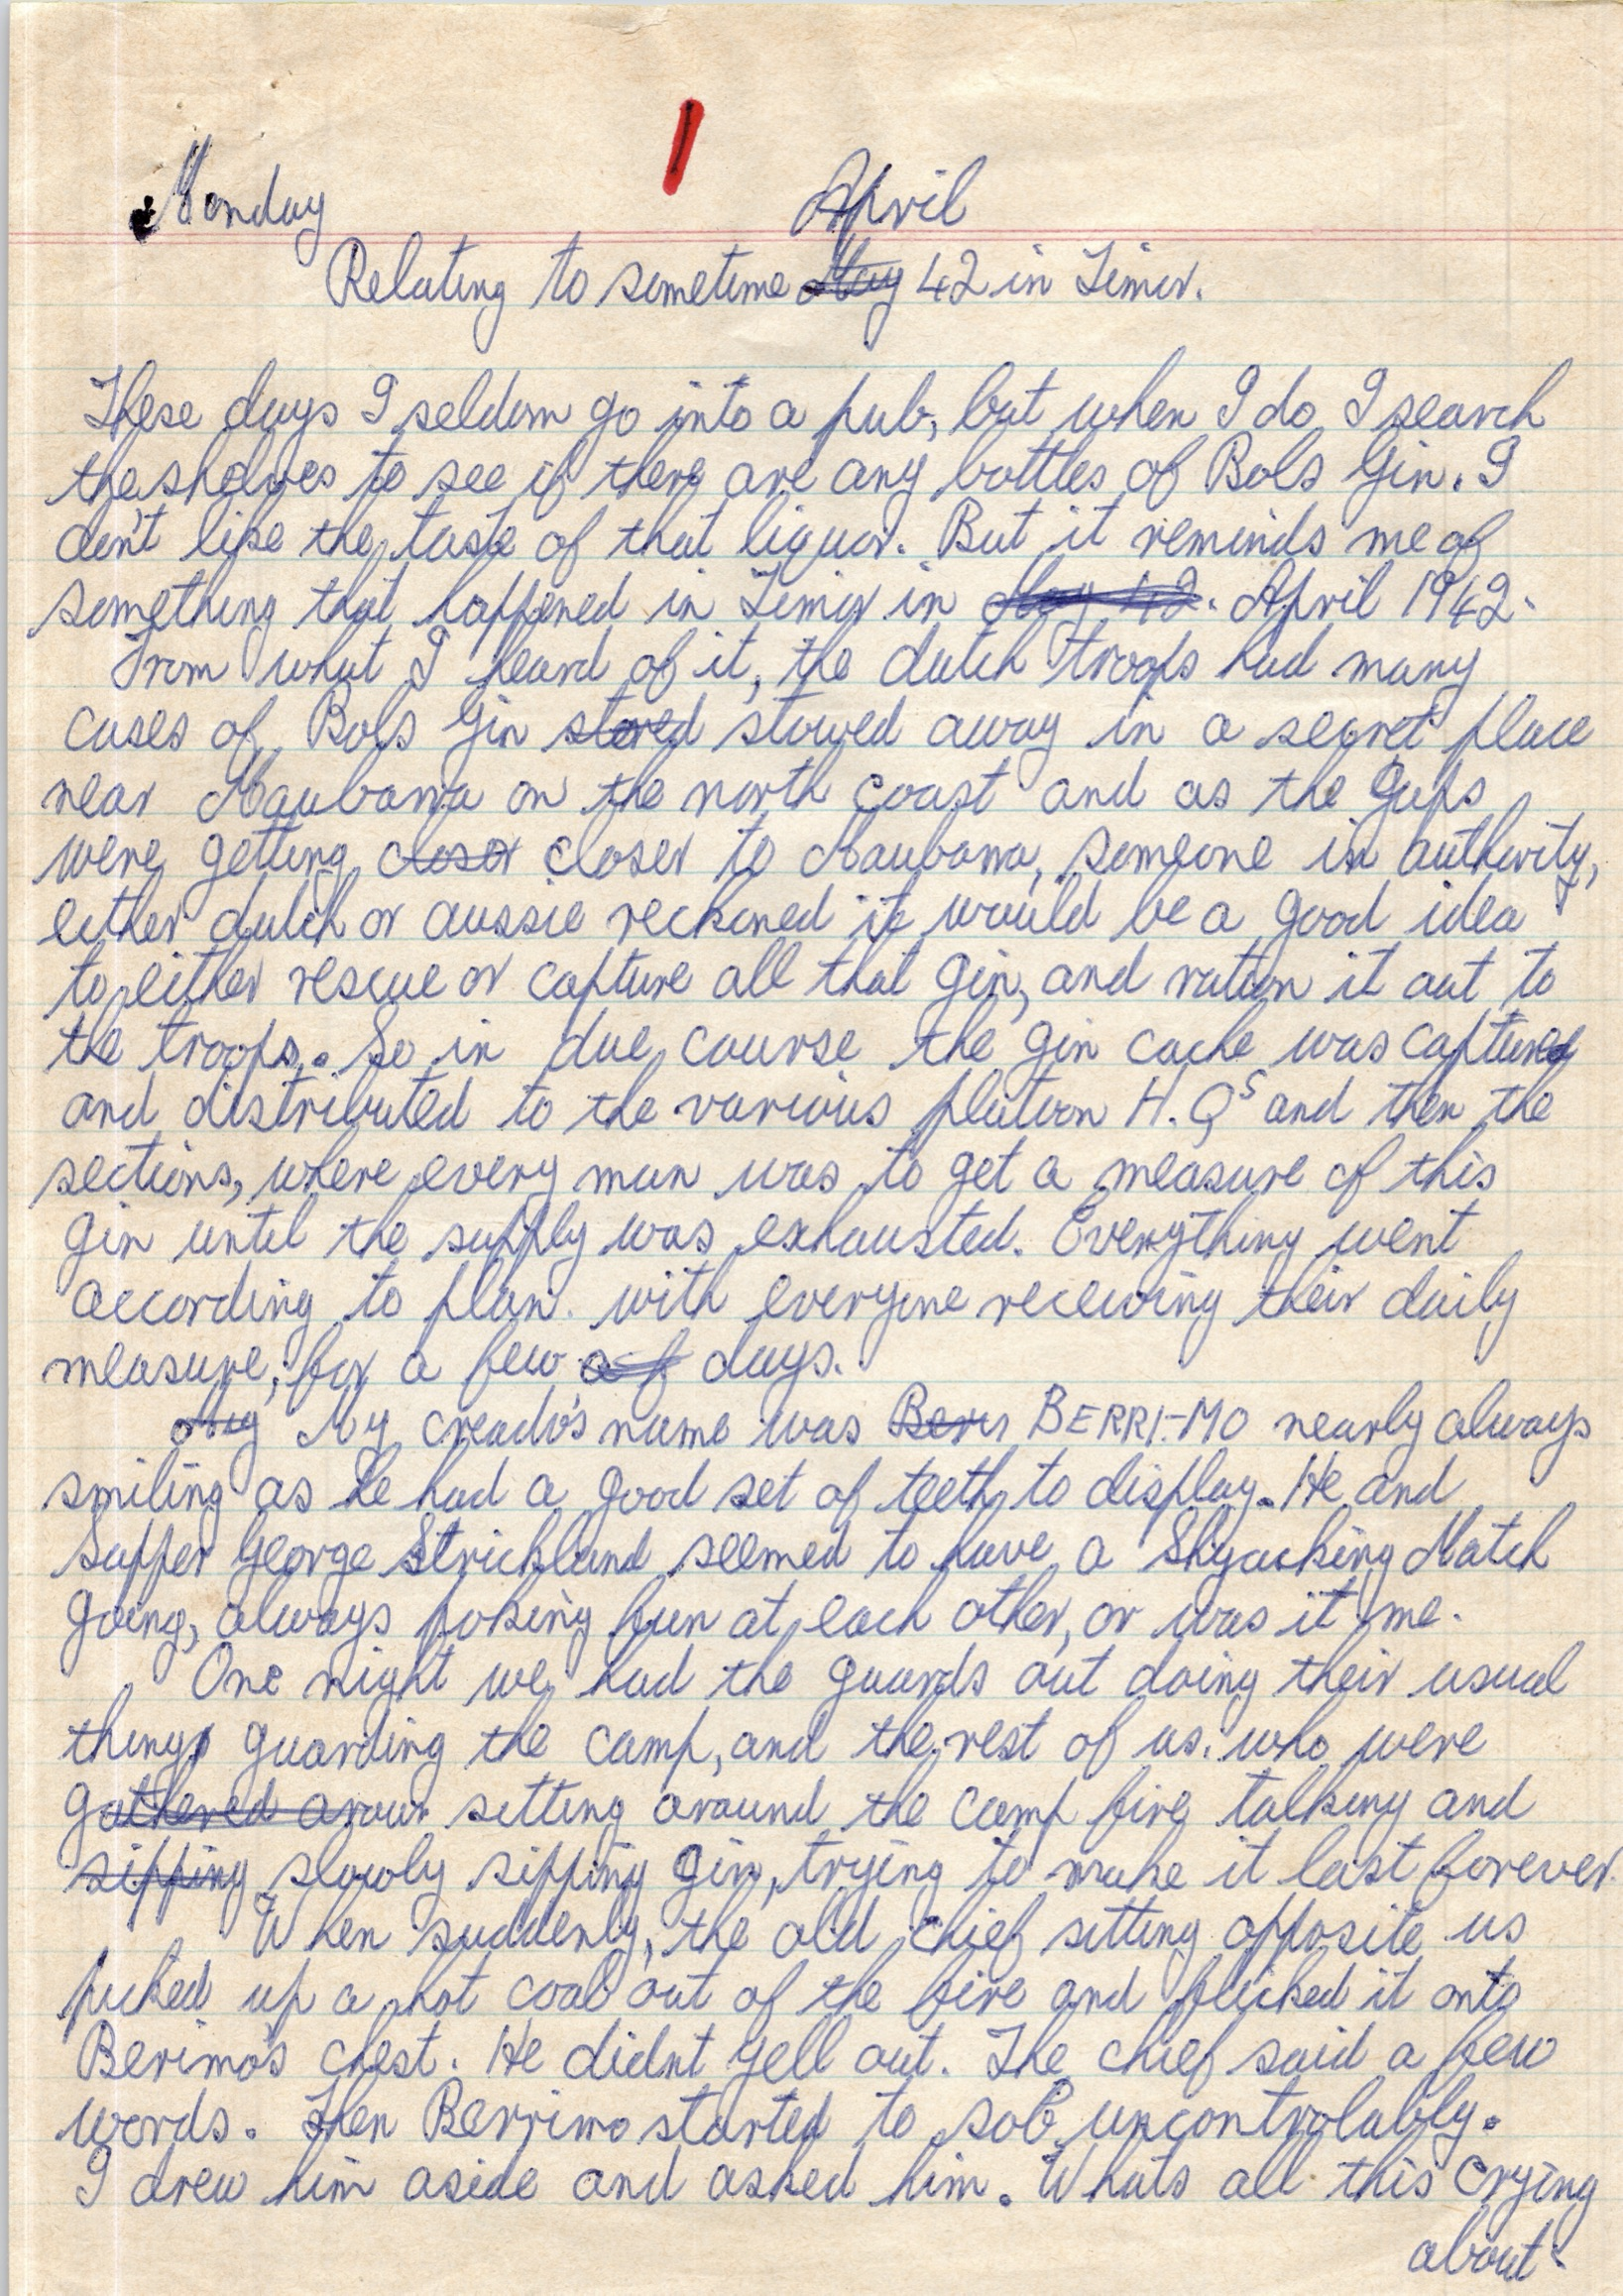 1
Monday April
Relating to sometime May 42 in Timor.
These days I seldom go into a pub, but when I do I search
the shelves to see if there are any bottles of Bols Gin. I
don't like the taste of that liquor. But it reminds me of
something that happened in Timor in May 42. April 1942.
From what I heard of it, the dutch troops had many
cases of Bols Gin stored stowed away in a secret place
near Maubarra on the north coast and as the Japs
were getting closer closer to Maubarra, someone in authority,
either dutch or aussie reckoned it would be a good idea
to either rescue or capture all that gin, and ration it out to
the troops. So in due course the gin cache was captured
and distributed to the various platoon H.Qs and then the
sections, where every man was to get a measure of this
gin until the supply was exhausted. Everything went
according to plan. with everyone receiving their daily
measure, for a few of days.
My My creado's name was Berri BERRI-MO nearly always
smiling as he had a good set of teeth to display. He and
Sapper George Strickland seemed to have a Skyacking Match
going, always poking fun at each other, or was it me.
One night we had the guards out doing their usual
things guarding the camp, and the rest of us. who were
gathered aroun sitting around the camp fire talking and
sipping slowly sipping Gin, trying to make it last forever.
When suddenly, the old chief sitting opposite us
picked up a hot coal out of the fire and flicked it onto
Berimo's chest. He didnt yell out. The chief said a few
words. Then Berrimo started to sob uncontrolably.
I drew him aside and asked him. Whats all this crying
about.